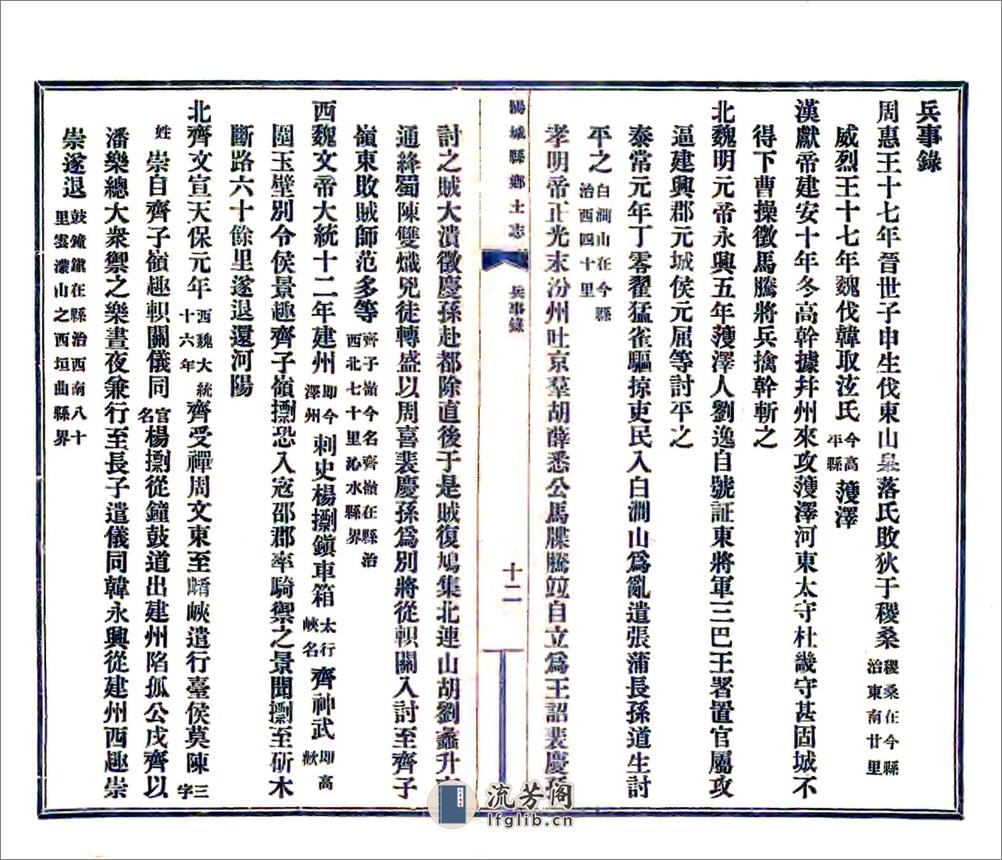 兵事錄
周惠王十七年晉世子申生伐東山臯落氏敗狄于稷桑稷桑在今縣治東南廿里
威烈王十七年魏伐韓取泫氏今高平縣濩澤
漢獻帝建安十年冬高幹據幷州來攻濩澤河東太守杜畿守甚固城不
得下曹操徵馬騰將兵擒幹斬之
北魏明元帝永興五年濩澤人劉逸自號証東將軍三巴王署置官屬攻
逼建興郡元城侯元屈等討平之
泰常元年丁零翟猛雀驅掠吏民入白澗山爲亂遣張蒲長孫道生討
平之白澗山在今縣治西四十里
孝明帝正光末汾州吐京羣胡薛悉公馬牒騰竝自立爲王詔裴慶孫
陽城縣鄉土志
兵事錄
十二
討之賊大潰徵慶孫赴都除直後于是賊復鳩集北連山胡劉蠡升
通絳蜀陳雙熾兇徒轉盛以周喜裴慶孫爲別將從軹關入討至齊子
嶺東敗賊師范多等齊子嶺今名齊嶺在縣治西北七十里沁水縣界
西魏文帝大統十二年建州即今澤州刺史楊㯹鎭車箱太行峽名齊神武即高歡
圍玉壁別令侯景趣齊子嶺㯹恐入寇邵郡率騎禦之景聞㯹至斫木
斷路六十餘里遂退還河陽
北齊文宣天保元年西魏大統十六年齊受禪周文東至崤峽遣行臺侯莫陳三字
姓崇自齊子嶺趣軹關儀同官名楊㯹從鐘鼓道出建州陷孤公戍齊以
潘樂總大衆禦之樂晝夜兼行至長子遣儀同韓永興從建州西趣崇
崇遂退鼓鐘鎭在縣治西南八十里雲濛山之西垣曲縣界
流芳阁
lfglib.cn